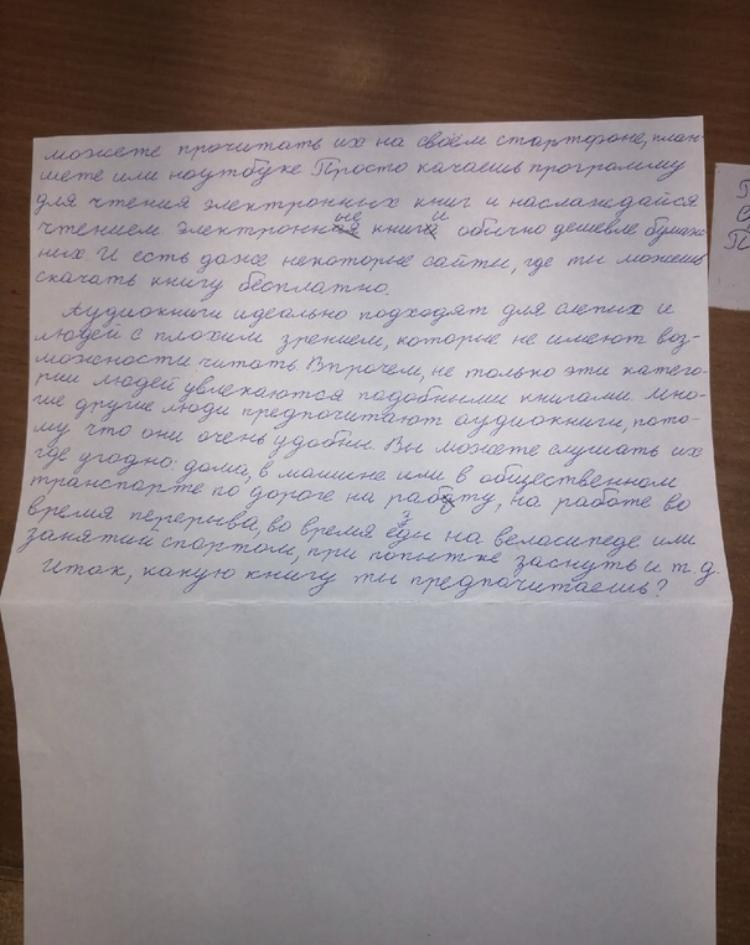 можете прочитать их на своём стартфоне, план-
шете или ноутбуке Просто качаешь программу
для чтения электронных книг и наслаждайся
чтением. Электронные книги обычно дешевле бумаж-
ных. И есть даже некоторые сайты, где ты можешь
скачать книгу бесплатно.
Аудиокниги идеально подходят для слепых и
людей с плохим зрением, которые не имеют воз-
можности читать. Впрочем, не только эти катего-
рии людей увлекаются подобными книгами. Мно-
гие другие люди предпочитают аудиокниги, пото-
му что они очень удобны. Вы можете слушать их
где угодно: дома, в машине или в общественном
транспорте по дороге на работу, на работе во
время перерыва, во время езды на веласипеде или
занятий спортом, при попытке заснуть и т.д.
Итак, какую книгу ты предпочитаешь?